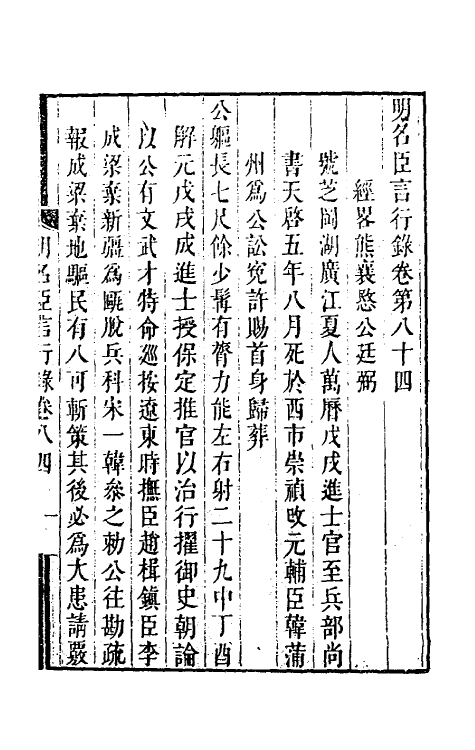 明名臣言行錄卷第八十四
經畧熊襄愍公廷弼
號芝岡湖廣江夏人萬曆戊戌進士官至兵部尚
書天啓五年八月死於西市崇禎改元輔臣韓蒲
州爲公訟寃許賜首身歸葬
公軀長七尺餘少髯有膂力能左右射二十九中丁酉
解元戊戌成進士授保定推官以治行擢御史朝論
以公有文武才特命廵按遼東時撫臣趙楫鎮臣李
成梁棄新疆爲甌脫兵科宋一韓叅之勅公往勘疏
報成梁棄地驅民有八可斬策其後必爲大患請嚴
明名臣言行錄卷八四
一